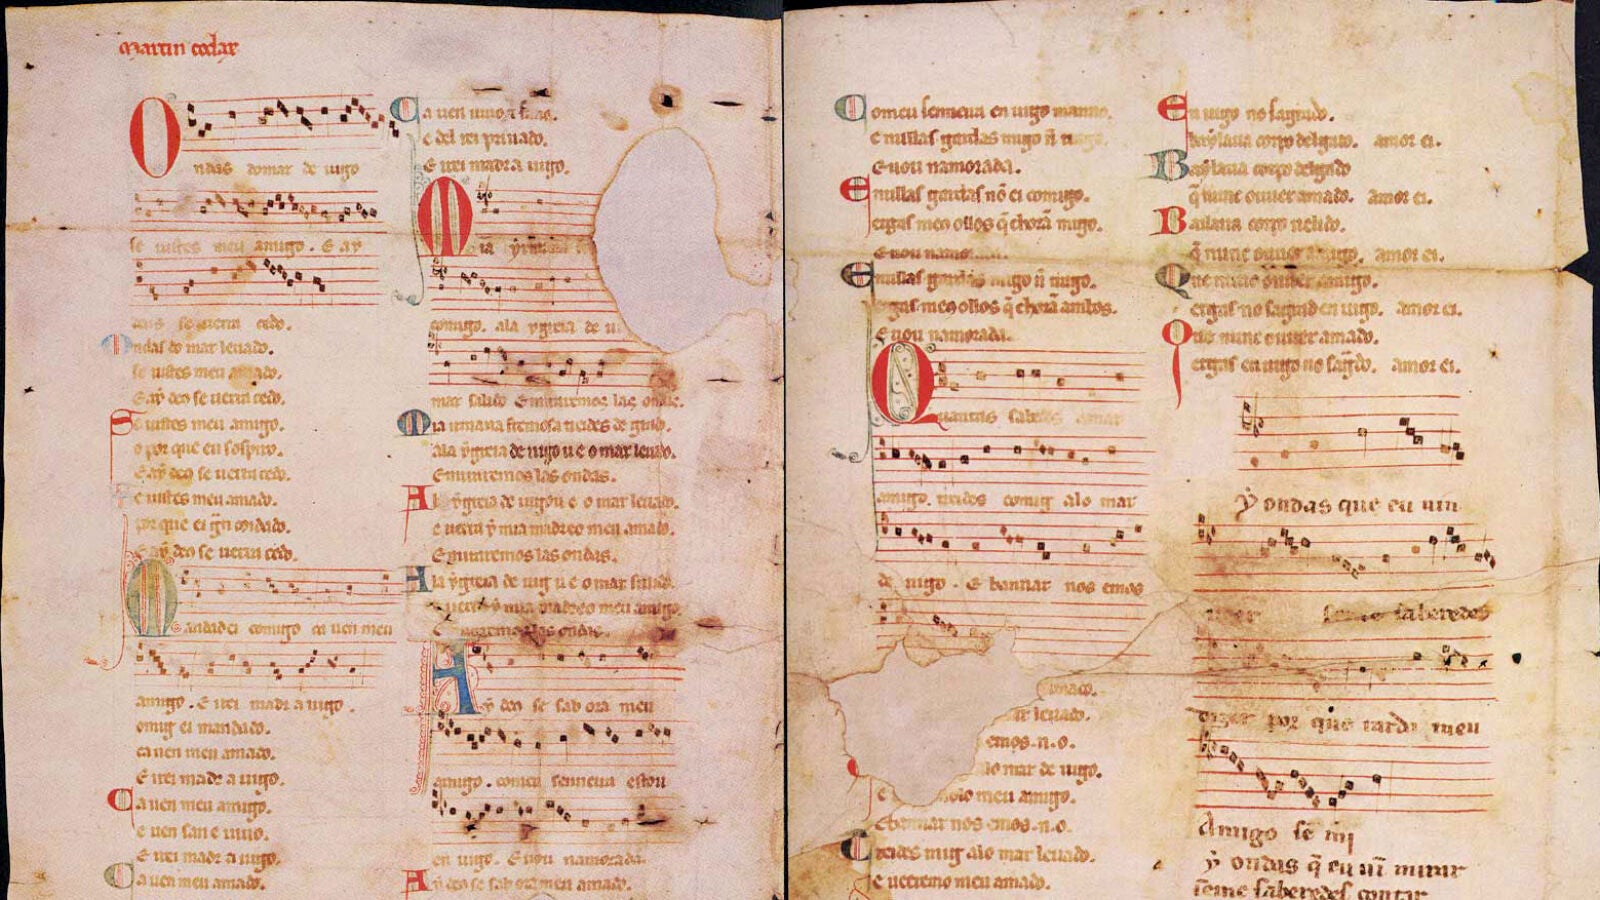 martin codax
Ondas do mar de vigo
se uistes meu amigo. E ay
deus se uerra cedo.
Ondas do mar leuado.
se uistes meu amado.
E ay deo se uerra cedo.
Se uistes meu amigo.
o por que eu sospiro.
E ay deo se uerra cedo.
Se uistes meu amado.
por que ei gñ coidado.
E ay deo se uerra cedo.
Mandad ei comigo ca uen meu
amigo. E irei madr a uigo.
comig ei mandado.
ca uen meu amado.
E irei madr a uigo.
Ca uen meu amigo.
e uen san e uiuo.
E irei madr a uigo.
Ca uen meu amado.
Ca uen uiuo e sano.
e del rei priuado.
E irei madr a uigo.
Mia yrmana
comigo. ala ygreia de u
mar salido E miraremos las ondas.
Mia irmana fremosa treides de grado.
ala ygreia de uigo u e o mar leuado.
E miraremos las ondas.
A la ygreia de uigo u e o mar leuado.
e uerra y mia madre o meu amado.
E miraremos las ondas.
A la ygreia de uig u e o mar salido.
e uerra y mia madre o meu amigo.
E miraremos las ondas.
Ay deo se sab ora meu
amigo. comeu senneira estou
en uigo. E uou namorada.
Ay deo se sab ora meu amado.
Comeu senneira en uigo manno.
e nullas gardas migo ñ
E uou namorada.
E nullas gardas nõ ei comigo.
ergas meo ollos q̃ chorã migo.
E uou
E nullas gardas migo ñ trago.
ergas meo ollos q̃ chorã ambos.
E uou namorada.
Quantas sabedes amar
amigo. treides comig alo mar
de uigo. E bannar nos emos
amado.
mar leuado.
emos.n.o.
lo mar de uigo.
e ueeremolo meu amigo.
E bannar nos emos.n.o.
Treides mig alo mar leuado.
e ueeremo meu amado.
En uigo no sagrado.
baylaua corpo delgado. amor ei.
Baylaua corpo delgado
q̃ nunc ouuer amado. amor ei.
Bailaua corpo uelido.
q̃ nunc ouuer amigo. amor ei.
Que nunc ouuer amigo.
ergas no sagrad en uigo. amor ei.
Que nunc ouuer amado.
ergas en uigo no sagrdo. amor ei.
ÿ ondas que eu uin
ueer se me saberedes
dizer por que tarda meu
Amigo se mĩ
ÿ ondas q̃ eu uĩ mirar
se me saberedes contar